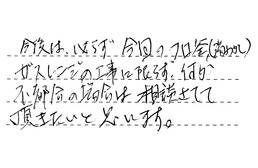 今後は、必ず今回のフロ釜(追わかし)
ガスレンジの工事に限らず、何か
不都合の場合は相談させて
頂きたいと思います。